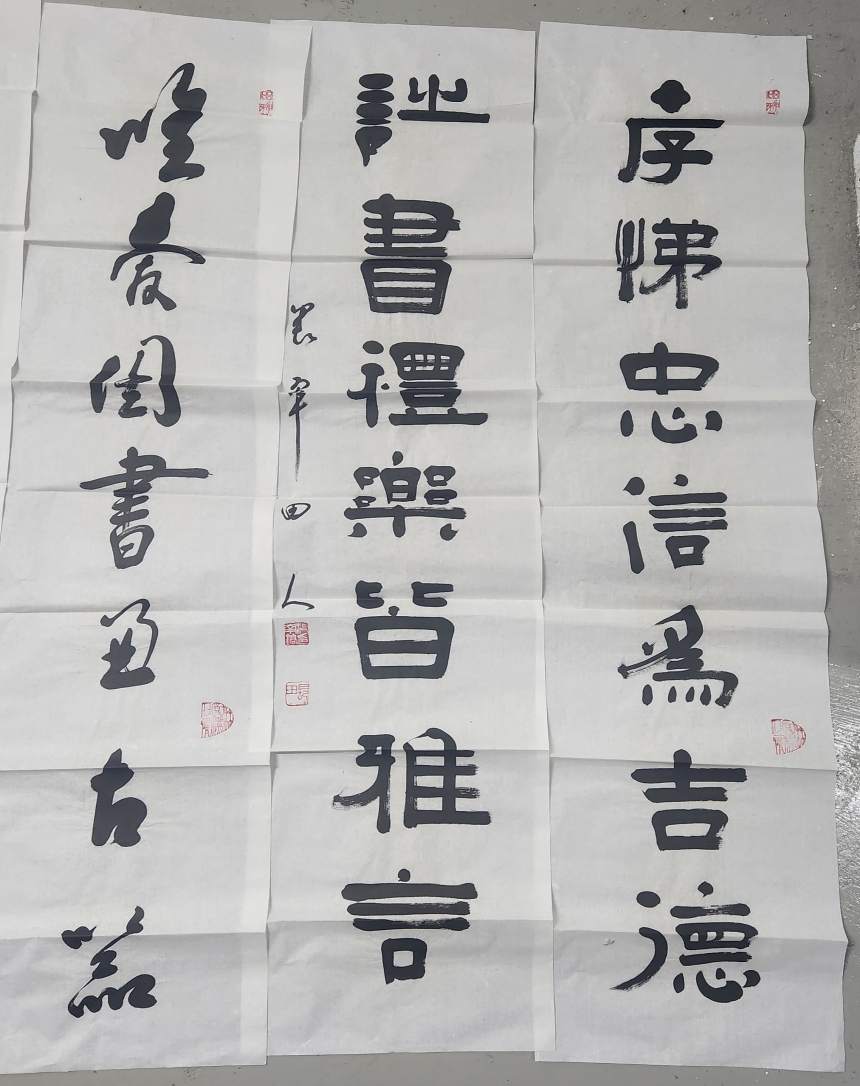 孝悌忠信爲吉德
詩書禮樂皆雅言
田人
唯愛圖書兼古器